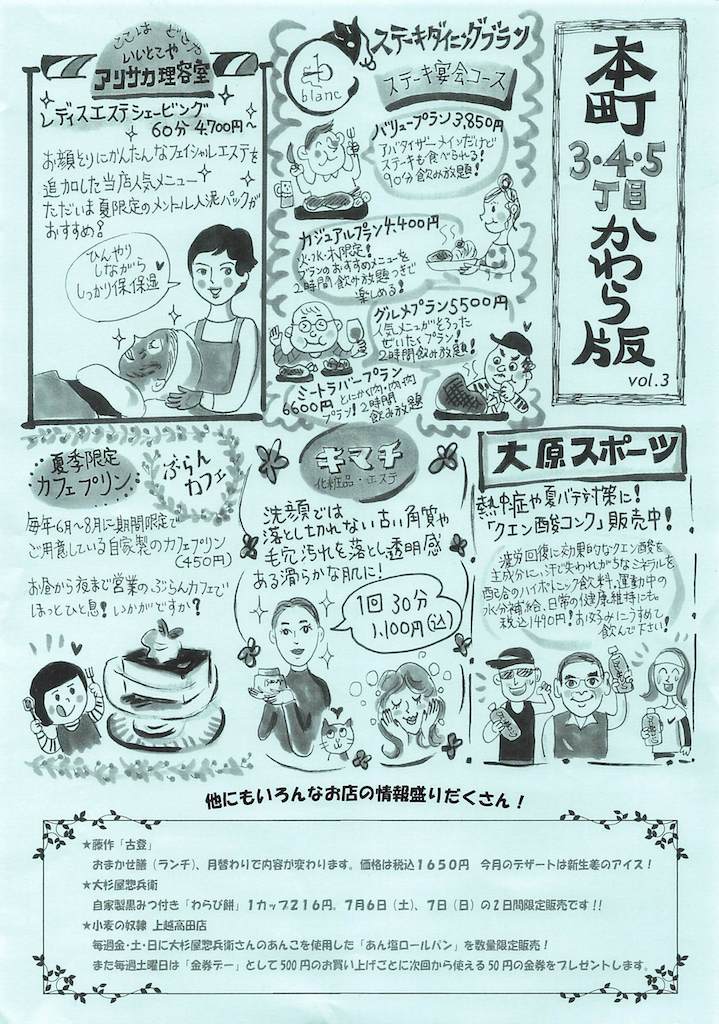 本町
3・4・5
丁目
かわら版
vol.3
ステーキダイニングプラン
blanc
ステーキ宴会コース
バリュープラン3,850円
アパタイザー メインだけど
ステーキも食べられる!
90分飲み放題!
カジュアルプラン4,400円
火・水・木限定!
プランのおすすめメニューを
2時間飲み放題つきで
楽しめる!
グルメプラン5500円
人気メニューがそろった
ぜいたくプラン!
2時間飲み放題!
ミートラバープラン
6600円 とにかく肉・肉・肉
プラン!2時間
飲み放題
いいとこや
アリサカ理容室
レディスエステシェービング
60分 4,700円~
お顔そりにかんたんなフェイシャルエステを
追加した当店人気メニュー
ただいま夏限定のメントール人泥パックが
おすすめ?
ひんやり
しながら
しっかり保保湿
大原スポーツ
熱中症や夏バテ対策に!
「クエン酸コンク」販売中!
疲労回復に効果的なクエン酸を
主成分に、汗で失われがちなミネラルを
配合のハイポトニック飲料。運動中の
水分補給、日常の健康維持にも。
税込1490円!お好みにうすめて
飲んで下さい!
キマチ
化粧品・エステ
洗顔では
落とし切れない古い角質や
毛穴汚れを落とし透明感
ある滑らかな肌に!
1回 30分
1,100円(込)
夏季限定
カフェプリン
ぶらん
カフェ
毎年6月~8月に期間限定で
ご用意している自家製のカフェプリン
(450円)
お昼から夜まで営業のぶらんカフェで
ほっとひと息!いかがですか?
他にもいろんなお店の情報盛りだくさん!
★藤作「古登」
おまかせ膳(ランチ)、月替わりで内容が変わります。価格は税込1650円 今月のデザートは新生姜のアイス!
★大杉屋惣兵衛
自家製黒みつ付き「わらび餅」1カップ216円。7月6日(土)、7日(日)の2日間限定販売です!!
★小麦の奴隷 上越高田店
毎週金・土・日に大杉屋惣兵衛さんのあんこを使用した「あん塩ロールパン」を数量限定販売!
また毎週土曜日は「金券デー」として500円のお買い上げごとに次回から使える50円の金券をプレゼントします。